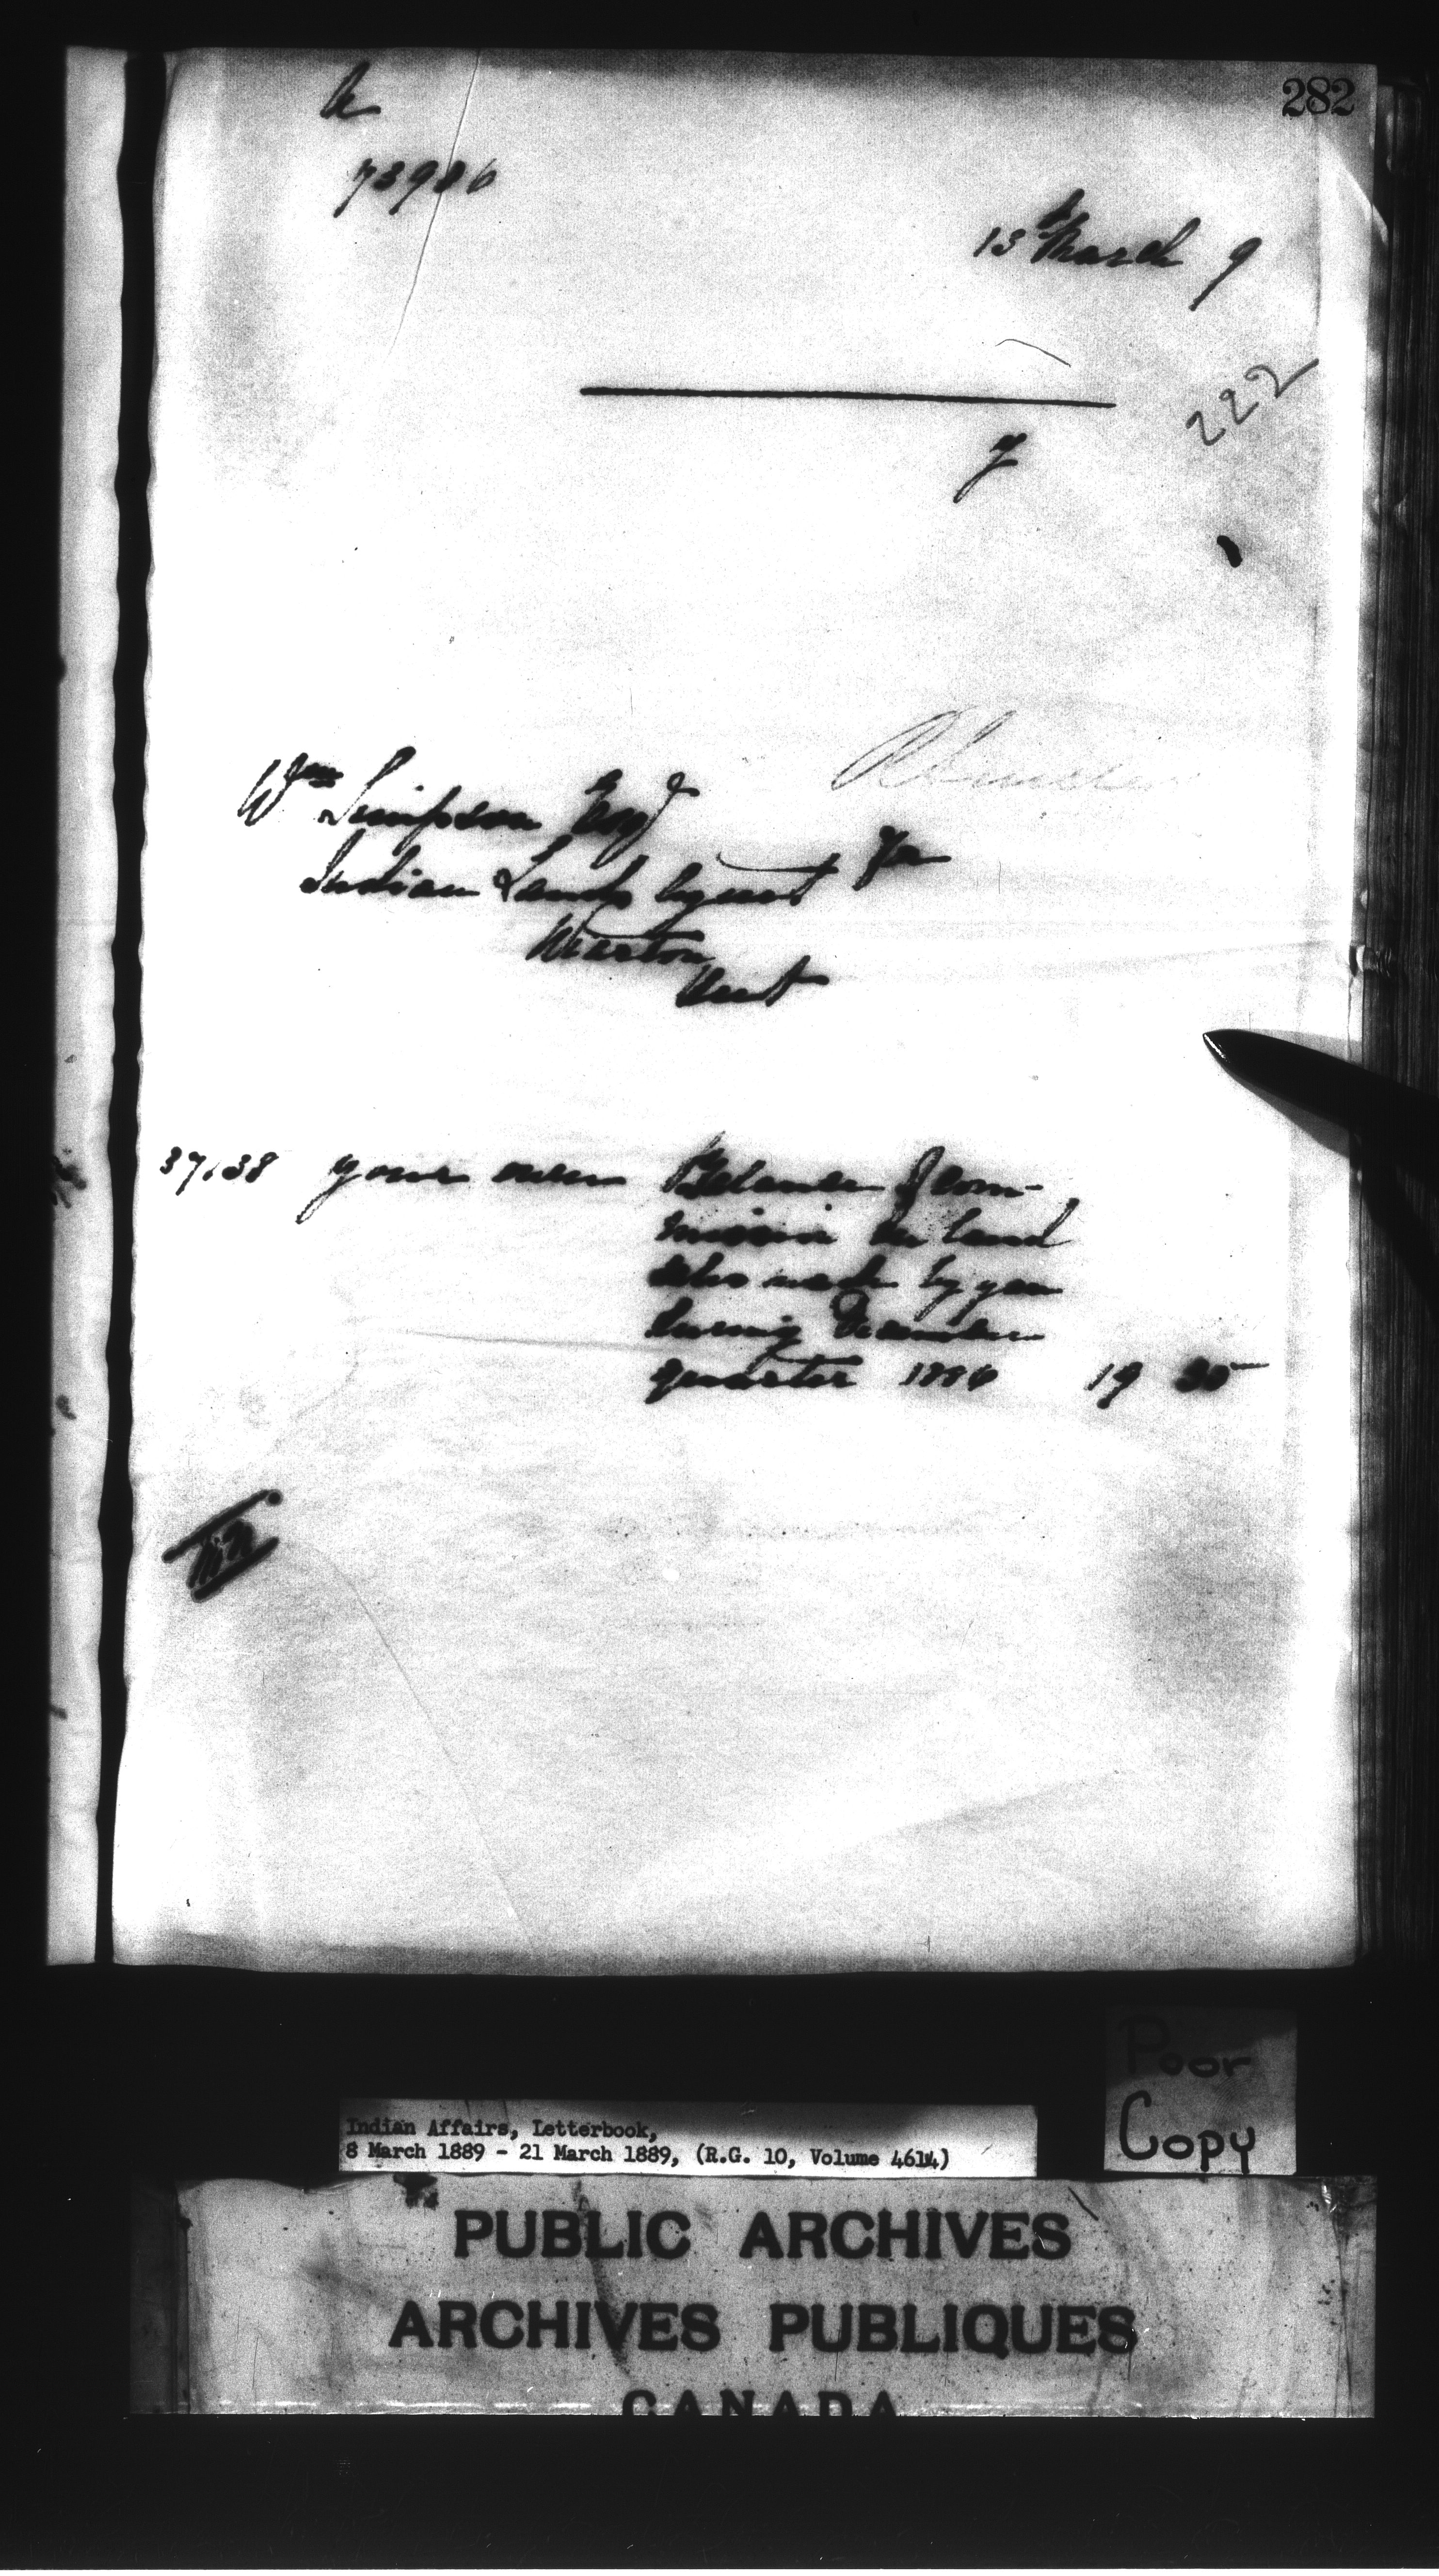 282
73986
13 March 9
222
Wm Simpson Esq
Indian Lands Agent
Wiarton
Ont
37,38 your own Balance of com-
mission on land
sales made by you
during December
quarter 1886 19
Poor
Copy
Indian Affairs, Letterbook,
8 March 1889 - 21 March 1889, (R.G. 10, Volume 4614)
PUBLIC ARCHIVES
ARCHIVES PUBLIQUES
CANADA